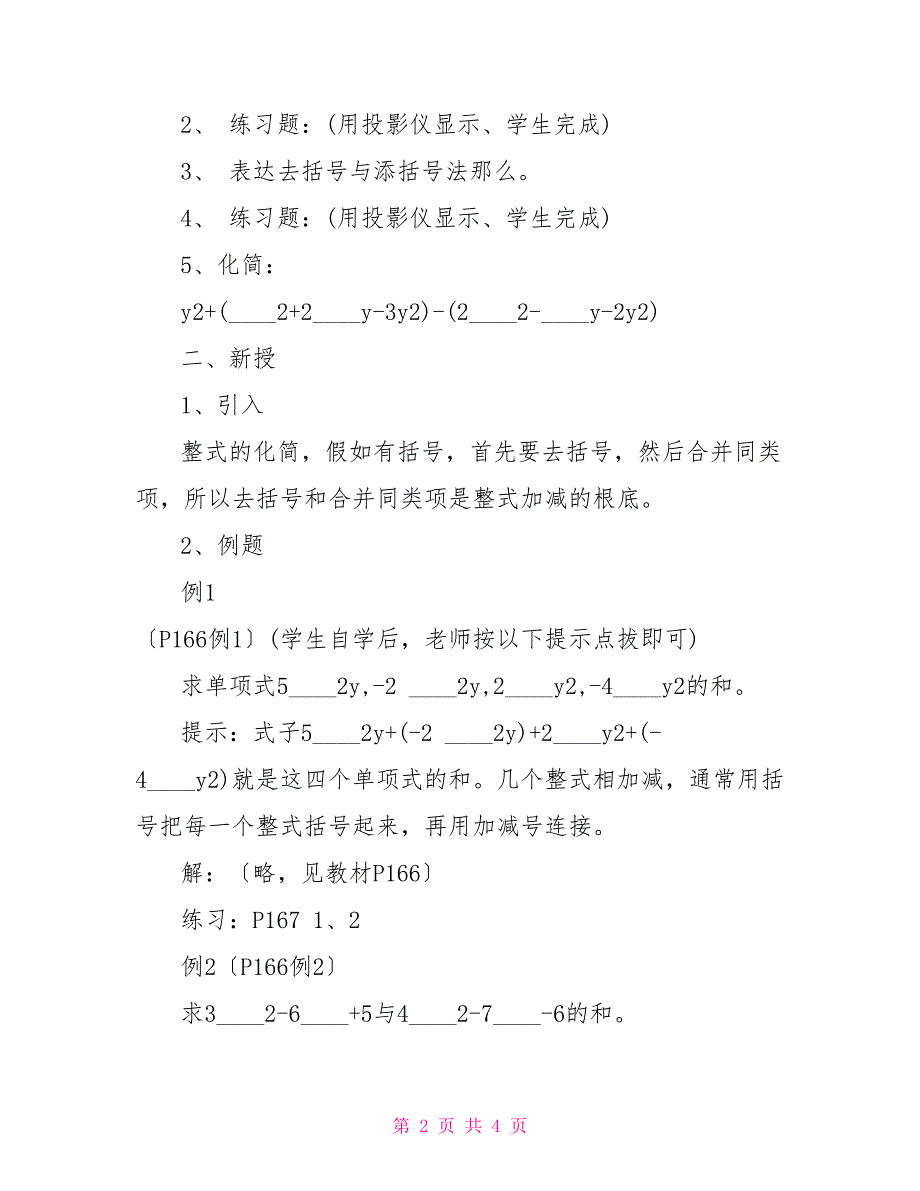 2、 练习题：(用投影仪显示、学生完成)
3、 表达去括号与添括号法那么。
4、 练习题：(用投影仪显示、学生完成)
5、化简：
y2+(____2+2____y-3y2)-(2____2-____y-2y2)
二、新授
1、引入
整式的化简，假如有括号，首先要去括号，然后合并同类
项，所以去括号和合并同类项是整式加减的根底。
2、例题
例1
〔P166例1〕(学生自学后，老师按以下提示点拔即可)
求单项式5____2y,-2 ____2y,2____y2,-4____y2的和。
提示：式子5____2y+(-2 ____2y)+2____y2+(-
4____y2)就是这四个单项式的和。几个整式相加减，通常用括
号把每一个整式括号起来，再用加减号连接。
解：〔略，见教材P166〕
练习：P167 1、2
例2〔P166例2〕
求3____2-6____+5与4____2-7____-6的和。
第 2 页 共 4 页